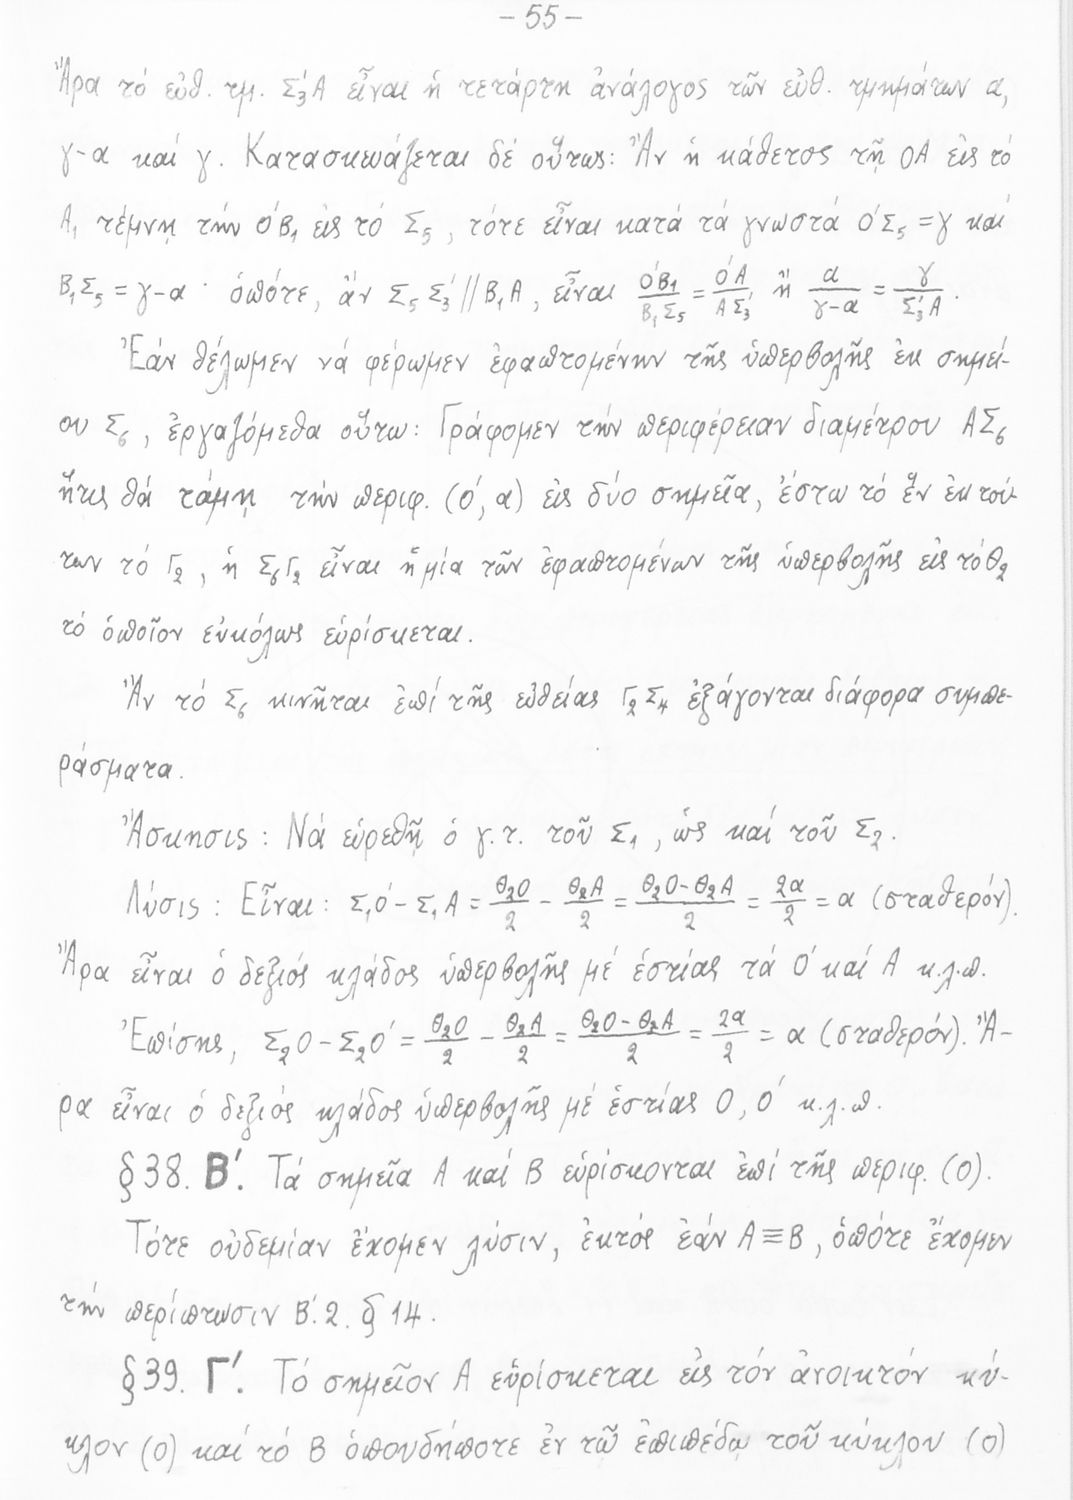 - 55 -
Ἄρα τό εὐθ. τμ. Σ₃́Α εἶναι ἡ τετάρτη ἀνάλογος τῶν εὐθ. τμημάτων α,
γ-α καί γ. Κατασκευάζεται δέ οὕτως: Ἄν ἡ κάθετος τῇ ΟΑ εἰς τό
Α, τέμνῃ τήν Ο΄Β₁ εἰς τό Σ₅, τότε εἶναι κατά τά γνωστά Ο΄Σ₅ = γ καί
Β₁Σ₅ = γ-α · ὁπότε, ἄν Σ₅Σ₃΄ // Β₁Α, εἶναι Ο΄Β₁/Β₁Σ₅ = Ο΄Α/ΑΣ₃΄ ἤ α/γ-α = γ/Σ₃΄Α.
Ἐάν θέλωμεν νά φέρωμεν ἐφαπτομένην τῆς ὑπερβολῆς ἐκ σημεί-
ου Σ₆, ἐργαζόμεθα οὕτω: Γράφομεν τήν περιφέρειαν διαμέτρου ΑΣ₆
ἥτις θά τάμῃ τήν περιφ. (Ο΄, α) εἰς δύο σημεῖα, ἔστω τό ἕν ἐκ τού-
των τό Γ₂, ἡ Σ₆Γ₂ εἶναι ἡ μία τῶν ἐφαπτομένων τῆς ὑπερβολῆς εἰς τό Θ₂
τό ὁποῖον εὐκόλως εὑρίσκεται.
Ἄν τό Σ₆ κινῆται ἐπί τῆς εὐθείας Γ₂Σ₄ ἐξάγονται διάφορα συμπε-
ράσματα.
Ἄσκησις: Νά εὑρεθῇ ὁ γ.τ. τοῦ Σ₁, ὡς καί τοῦ Σ₂.
Λύσις: Εἶναι: Σ₁Ο΄ - Σ₁Α = Θ₂Ο/2 - Θ₂Α/2 = Θ₂Ο-Θ₂Α/2 = 2α/2 = α (σταθερόν).
Ἄρα εἶναι ὁ δεξιός κλάδος ὑπερβολῆς μέ ἑστίας τά Ο΄ καί Α κ.λ.π.
Ἐπίσης, Σ₂Ο - Σ₂Ο΄ = Θ₂Ο/2 - Θ₂Α/2 = Θ₂Ο - Θ₂Α/2 = 2α/2 = α (σταθερόν). Ἄ-
ρα εἶναι ὁ δεξιός κλάδος ὑπερβολῆς μέ ἑστίας Ο, Ο΄ κ.λ.π.
§38. Β΄. Τά σημεῖα Α καί Β εὑρίσκονται ἐπί τῆς περιφ. (Ο).
Τότε οὐδεμίαν ἔχομεν λύσιν, ἐκτός ἐάν Α ≡ Β, ὁπότε ἔχομεν
τήν περίπτωσιν Β΄.2. § 14.
§39. Γ΄. Τό σημεῖον Α εὑρίσκεται εἰς τόν ἀνοικτόν κύ-
κλον (Ο) καί τό Β ὁπουδήποτε ἐν τῷ ἐπιπέδῳ τοῦ κύκλου (Ο)